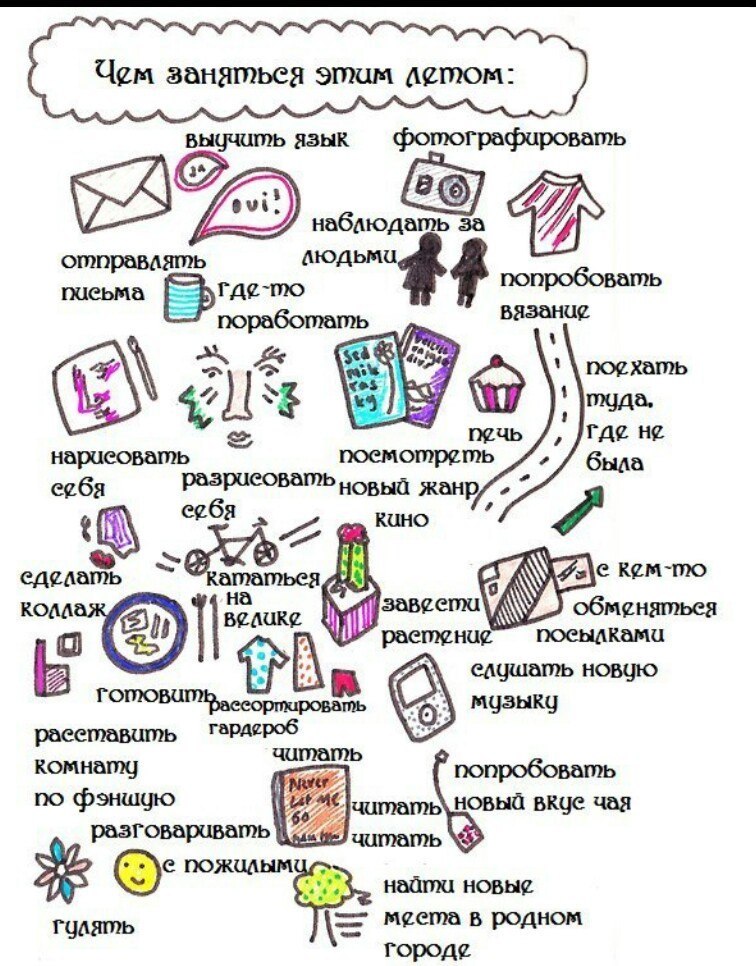 Чем заняться этим летом:
выучить язык
фотографировать
ja
oui!
наблюдать за
людьми
отправлять
письма
где-то
поработать
попробовать
вязание
поехать
туда,
где не
была
Sed
mik
ras
ky
печь
нарисовать
себя
разрисовать
себя
посмотреть
новый жанр
кино
сделать
коллаж
кататься
на
велике
завести
растение
с кем-то
обменяться
посылками
готовить
рассортировать
гардероб
слушать новую
музыку
расставить
комнату
по фэншую
читать
Never
Let Me
Go
читать
читать
попробовать
новый вкус чая
разговаривать
с пожилыми
гулять
найти новые
места в родном
городе